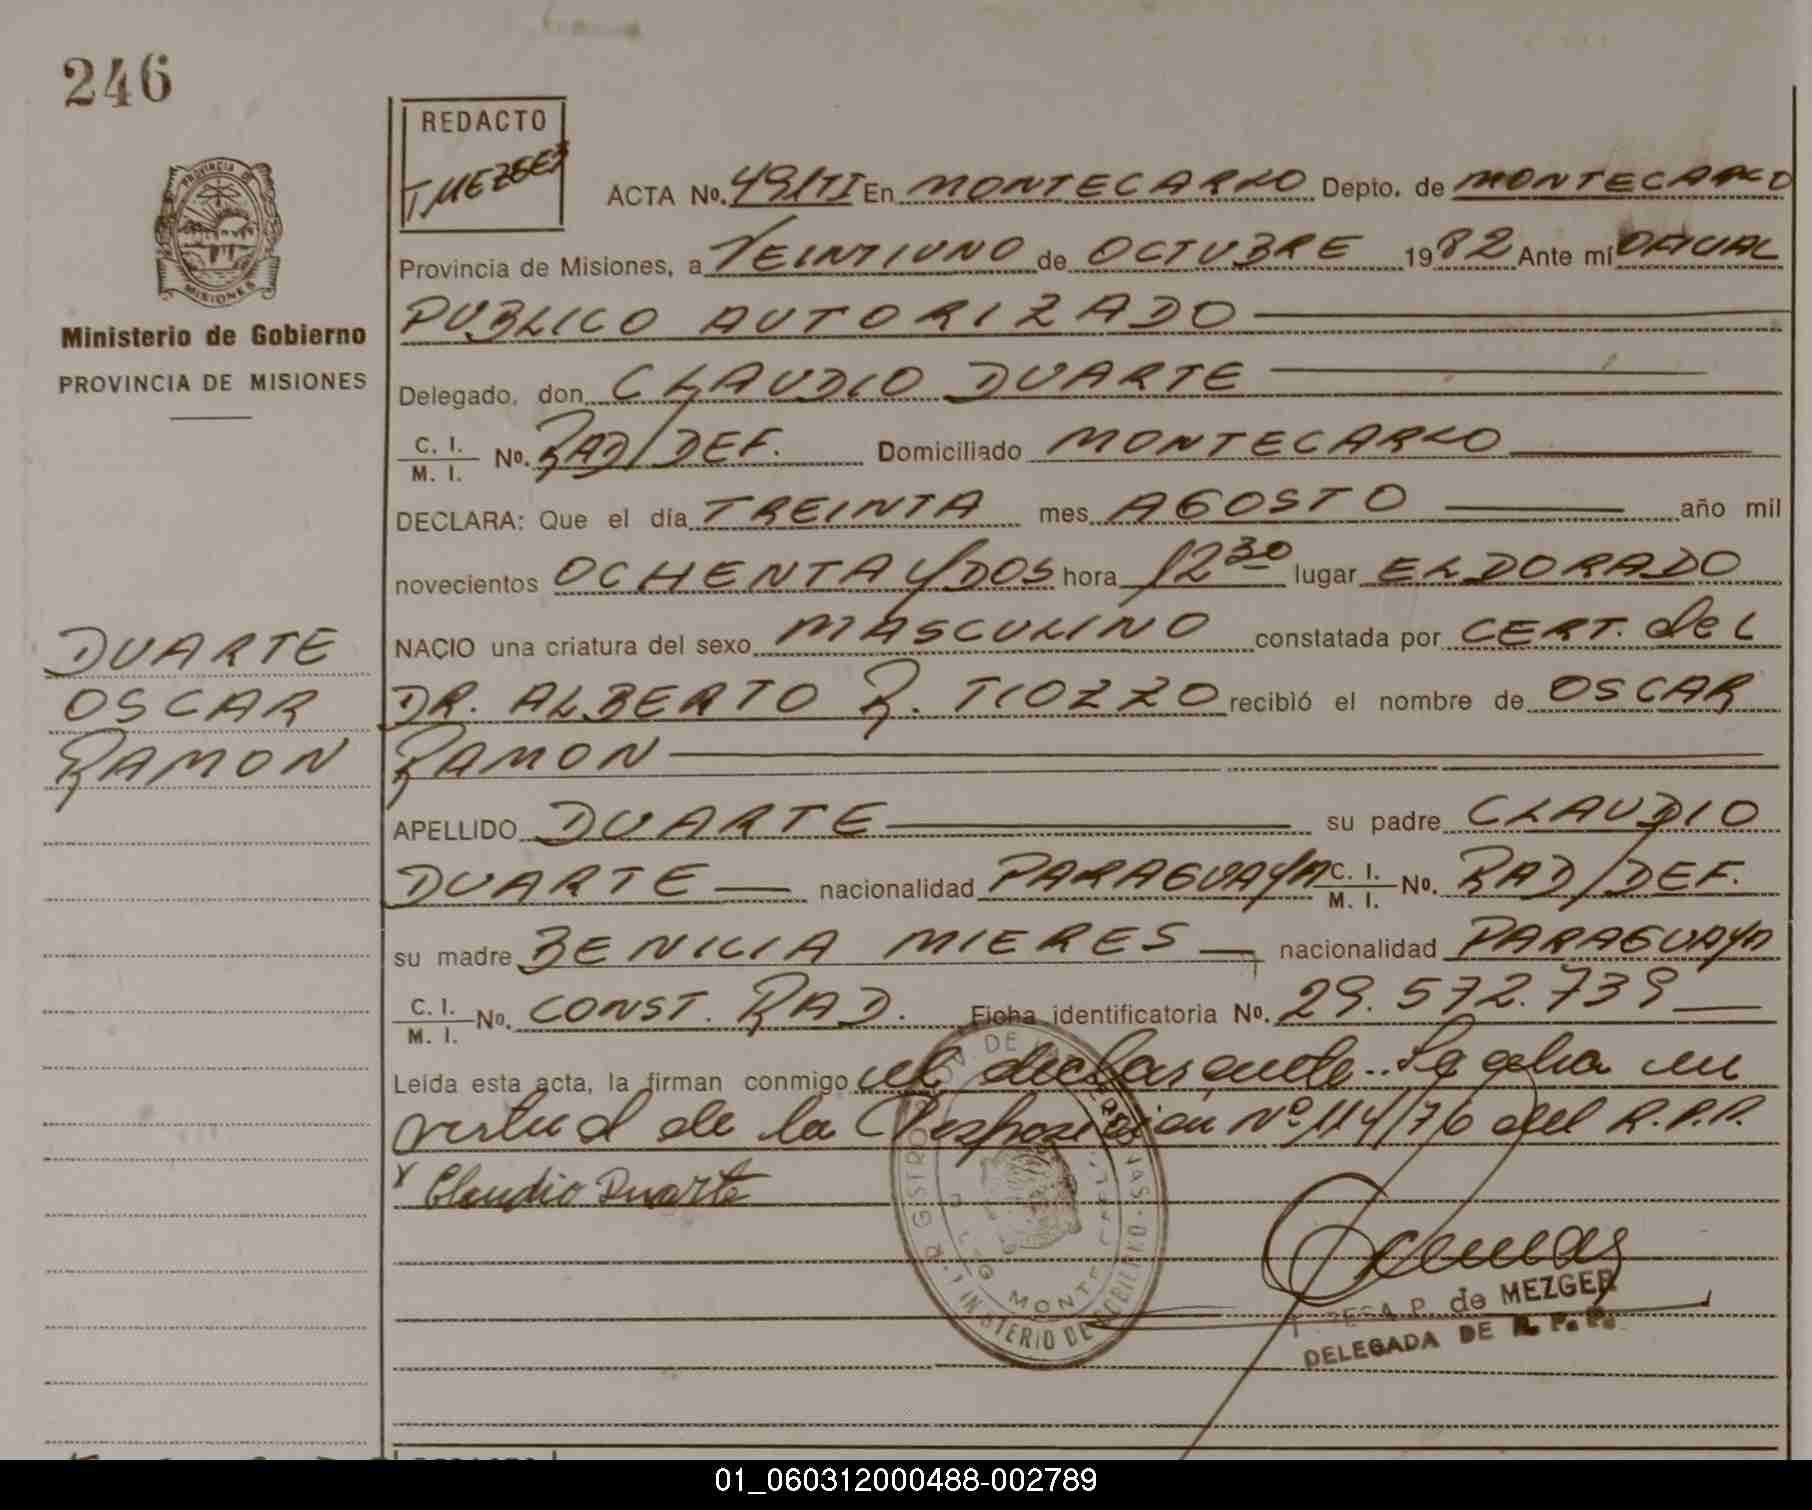 246
PROVINCIA DE
MISIONES
Ministerio de Gobierno
PROVINCIA DE MISIONES
DUARTE
OSCAR
RAMON
REDACTO
T. MEZGER
ACTA No. 491/TI En MONTECARLO Depto. de MONTECARLO
Provincia de Misiones, a VEINTIUNO de OCTUBRE 1982 Ante mí OFICIAL
PUBLICO AUTORIZADO
Delegado, don CLAUDIO DUARTE
C. I. / M. I. No. RAD/DEF. Domiciliado MONTECARLO
DECLARA: Que el día TREINTA mes AGOSTO año mil
novecientos OCHENTA Y DOS hora 12 30 lugar ELDORADO
NACIO una criatura del sexo MASCULINO constatada por CERT. del
DR. ALBERTO R. TIOZZO recibió el nombre de OSCAR
RAMON
APELLIDO DUARTE su padre CLAUDIO
DUARTE nacionalidad PARAGUAYA C. I. / M. I. No. RAD/DEF.
su madre BENICIA MIERES nacionalidad PARAGUAYA
C. I. / M. I. No. CONST. RAD. Ficha identificatoria No. 29.572.739
Leída esta acta, la firman conmigo el declarante.. Se labra en
virtud de la Disposición Nº 114/76 del R.P.P.
x Claudio Duarte
P. de MEZGER
DELEGADA DE R. P. P.
MINISTERIO DE GOBIERNO
01_060312000488-002789